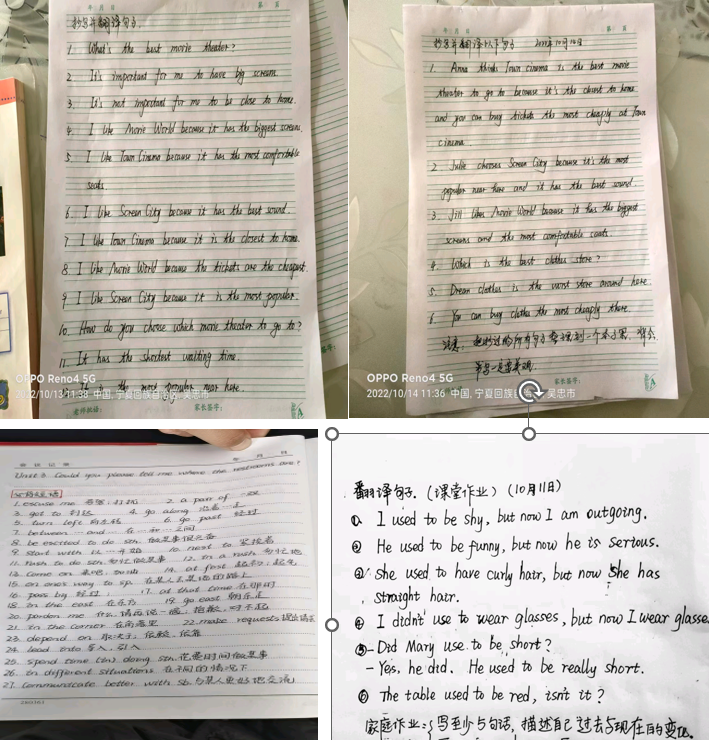 抄写并翻译句子.
1. What's the best movie theater?
2 It's important for me to have big screen.
3. It's not important for me to be close to home.
4. I like Movie World because it has the biggest screens.
5 I like Town Cinema because it has the most comfortable
seats.
6. I like Screen City because it has the best sound.
7 I like Town Cinema because it is the closest to home.
8 I like Movie World because the tickets are the cheapest.
9 I like Screen City because it is the most popular.
10. How do you choose which movie theater to go to?
11. It has the shortest waiting time.
It is the most popular near here.
OPPO Reno4 5G
2022/10/13 11:38 中国, 宁夏回族自治区, 吴忠市
家长签字:
抄写并翻译以下句子 2022年10月14日
1. Anna thinks Town cinema is the best movie
theater to go to because it's the closest to home
and you can buy tickets the most cheaply at Town
cinema
2 Julie chooses Screen City because it's the most
popular near here and it has the best sound.
3. Jill likes Movie World because it has the biggest
screens and the most comfortable seats.
4. Which is the best clothes store?
5. Dream clothes is the worst store around here.
6. You can buy clothes the most cheaply there.
注意:
OPPO Reno4 5G
2022/10/14 11:36 中国, 宁夏回族自治区, 吴忠市
家长签字:
Unit 3 Could you please tell me where the restrooms are?
1. excuse me 2. a pair of 一双
3. get to 到达 4. go along 沿着…走
5. turn left 向左转 6. go past 经过
7. between … and 在…和…之间
8. be excited to do sth.
9. start with 以…开始 10. next to 紧挨着
11. rush to do sth. 12. in a rush
13. come on 14. at first
15. on one's way to sp.
16. pass by 经过 17. at that time 在那时
18. in the east 在东方 19. go east 朝东走
20. pardon me
21. in the corner 22. make requests
23. depend on
24. lead into 导入, 引入
25. spend time (in) doing sth. 花费时间做某事
26. in different situations 在不同的情况下
27. communicate better with sb. 与某人更好地交流
翻译句子. (课堂作业) (10月11日)
① I used to be shy, but now I am outgoing.
② He used to be funny, but now he is serious.
③ She used to have curly hair, but now she has
straight hair.
④ I didn't use to wear glasses, but now I wear glasse
⑤ - Did Mary use to be short?
- Yes, he did. He used to be really short.
⑥ The table used to be red, isn't it?
家庭作业: 写至少5句话, 描述自己过去与现在的变化.